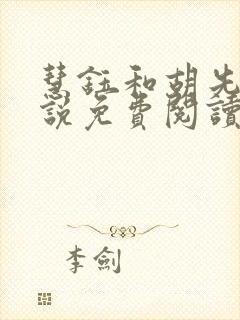 慧鈺和胡先
說免費閱讀
李劍